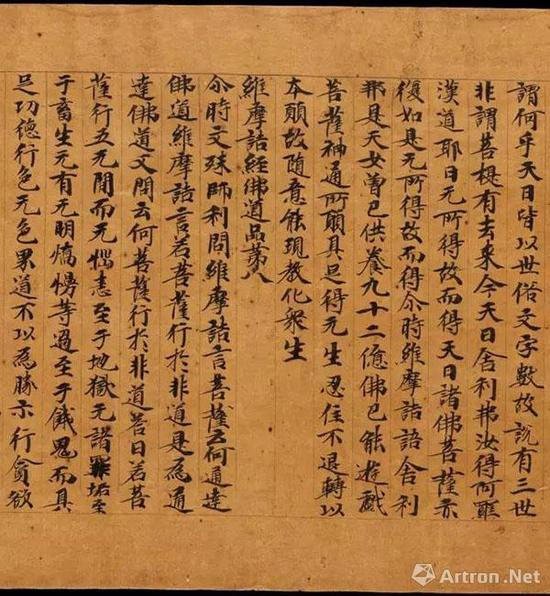 謂何乎天曰皆以世俗文字數故說有三世
非謂菩提有去来今天曰舍利弗汝得阿羅
漢道耶曰无所得故而得天曰諸佛菩薩亦
復如是无所得故而得尒時維摩詰語舍利
弗是天女曾已供養九十二億佛已能遊戲
菩薩神通所願具足得无生忍住不退轉以
本願故隨意能現教化衆生
維摩詰經佛道品第八
尒時文殊師利問維摩詰言菩薩云何通達
佛道維摩詰言若菩薩行於非道是為通
達佛道又問云何菩薩行於非道答曰若菩
薩行五无間而无惱恚至于地獄无諸罪垢至
于畜生无有无明憍慢等過至于餓鬼而具
足功德行色无色界道不以為勝示行貪欲
Artron.Net